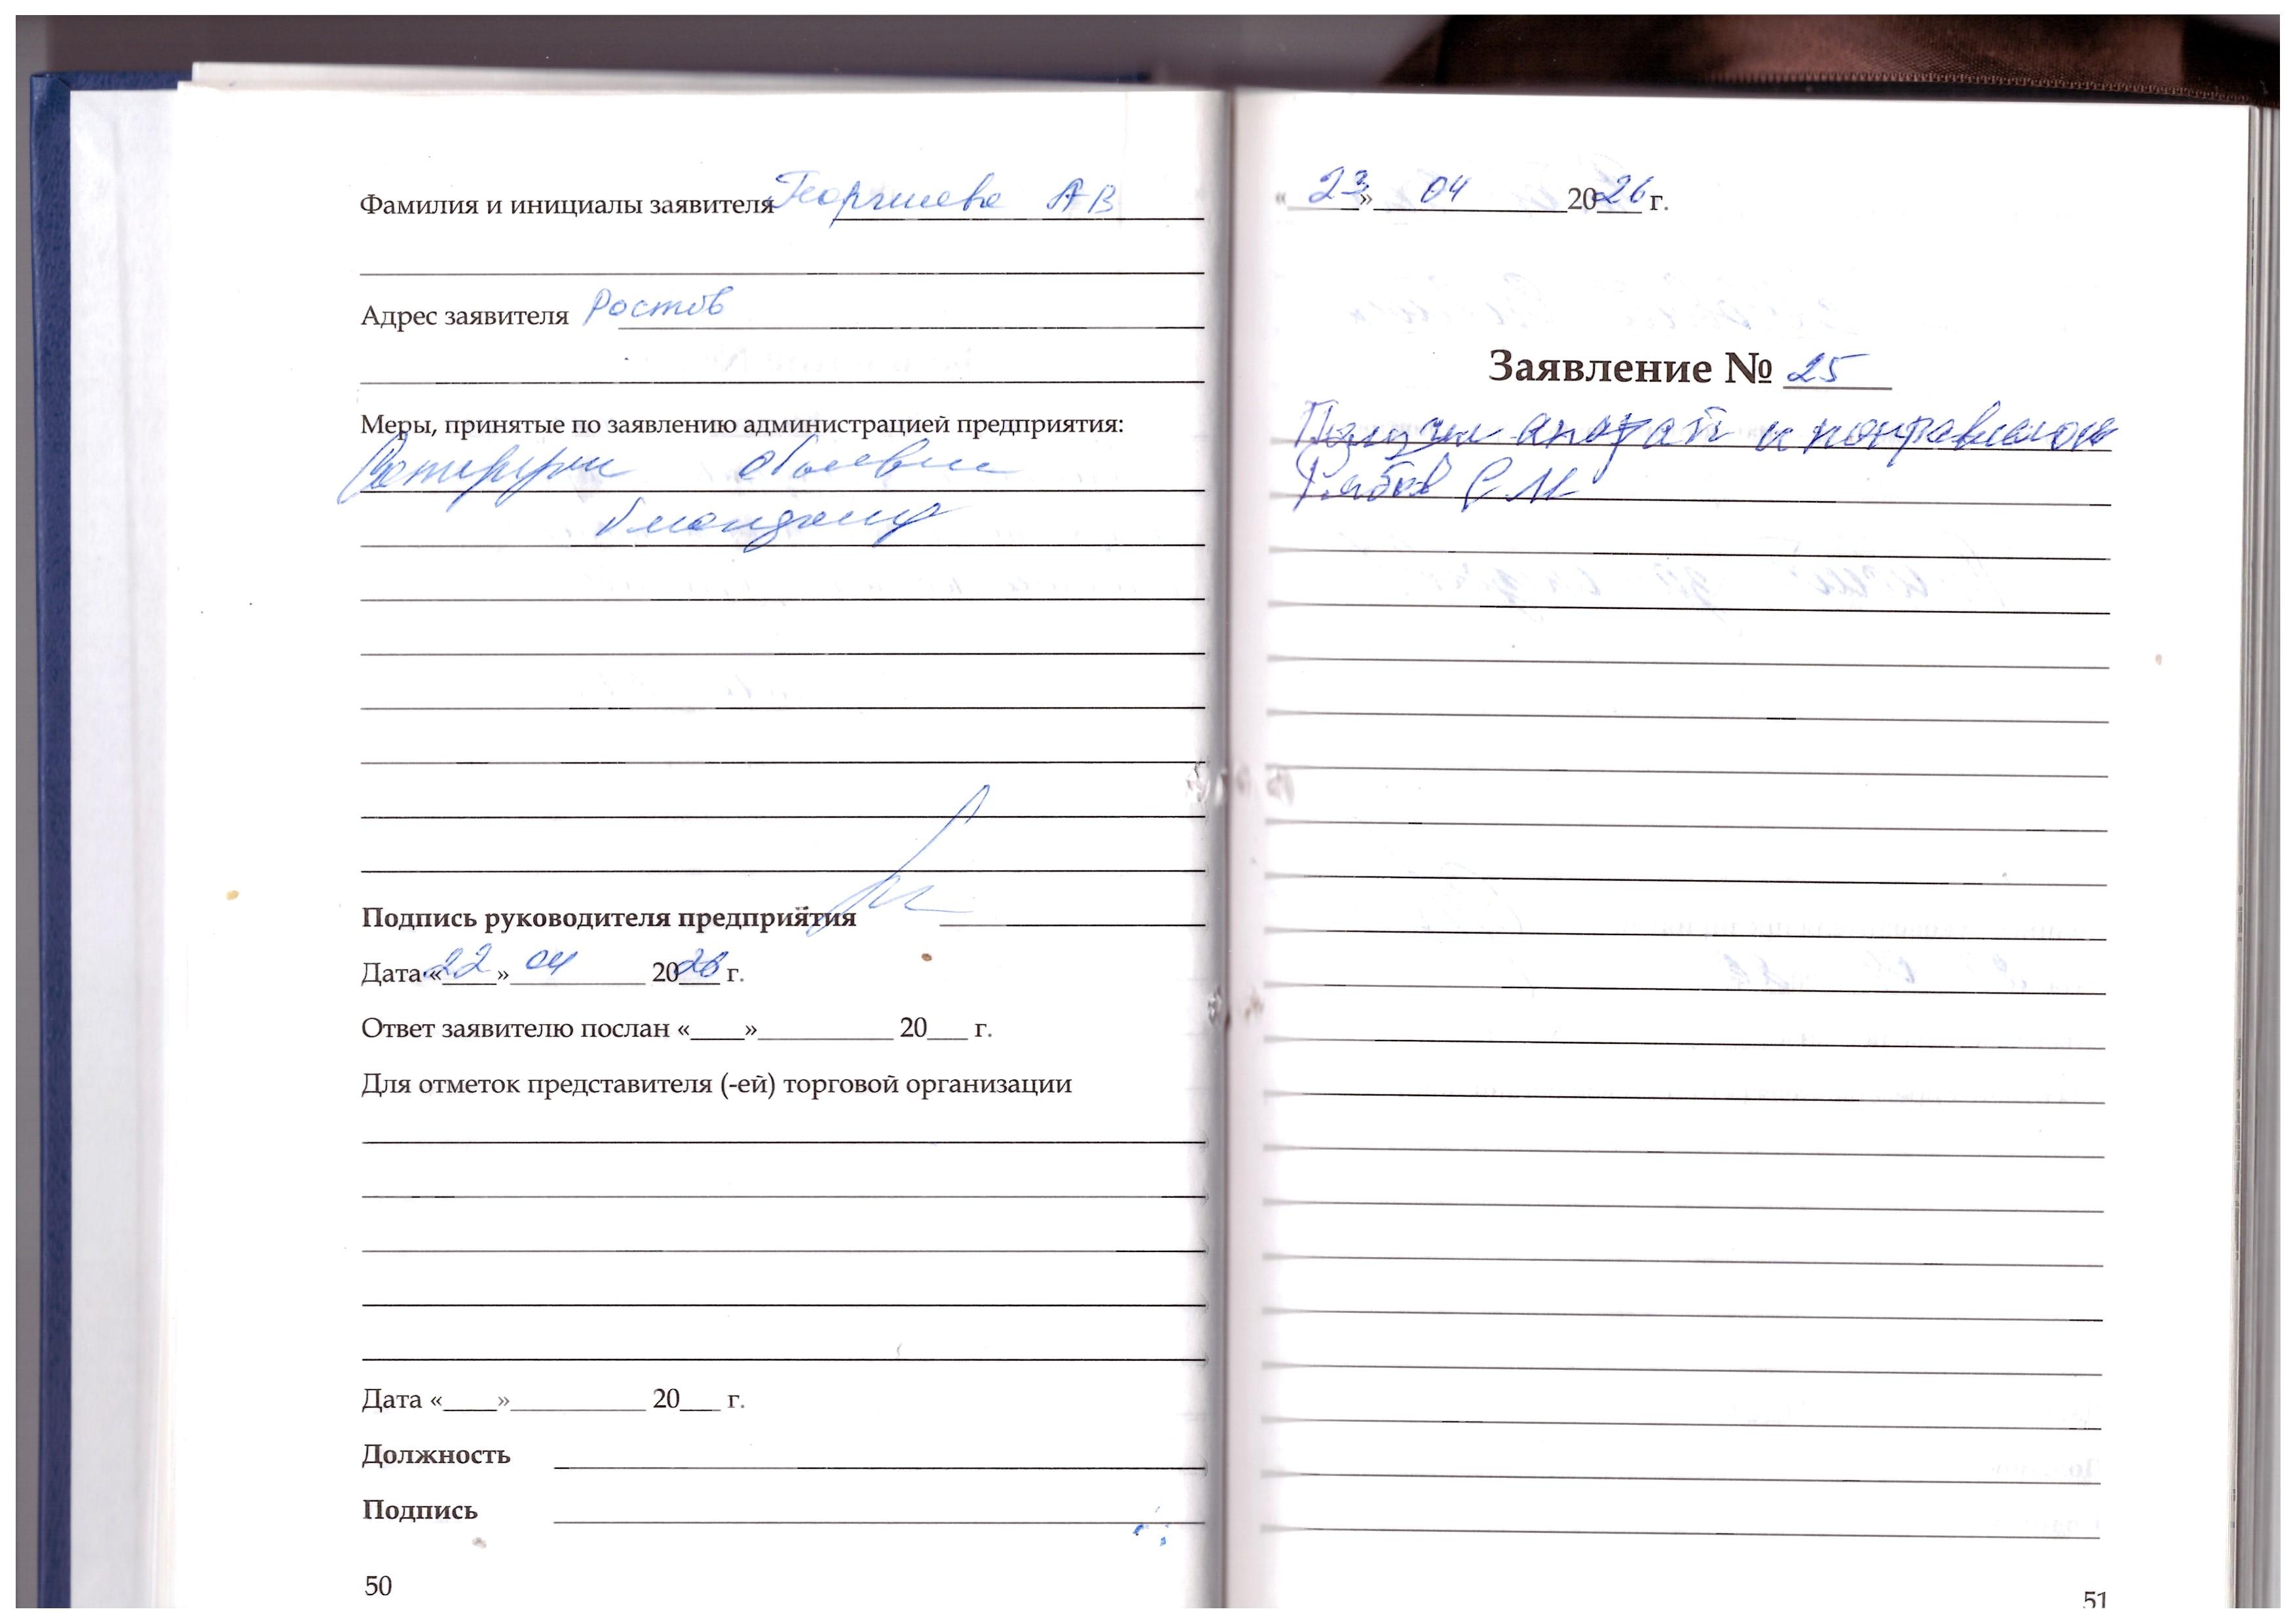 Фамилия и инициалы заявителя Георгиева АВ
Адрес заявителя Ростов
Меры, принятые по заявлению администрацией предприятия:
Подпись руководителя предприятия
Дата «22» 04 2026 г.
Ответ заявителю послан «____»__________ 20___ г.
Для отметок представителя (-ей) торговой организации
Дата «____»__________ 20___ г.
Должность
Подпись
50
«23» 04 2026 г.
Заявление № 25
апарат и понравилось
51